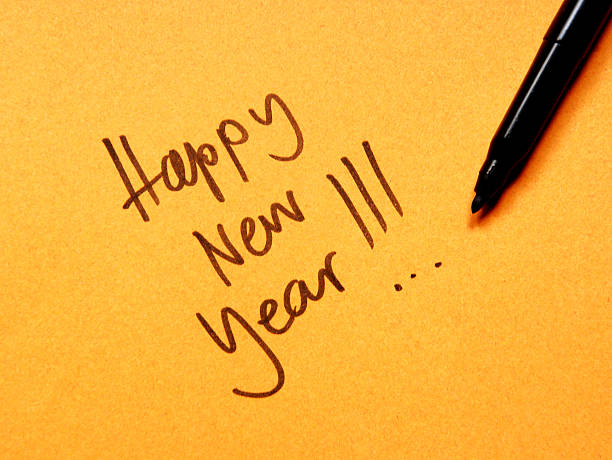 Happy
New
Year!!!